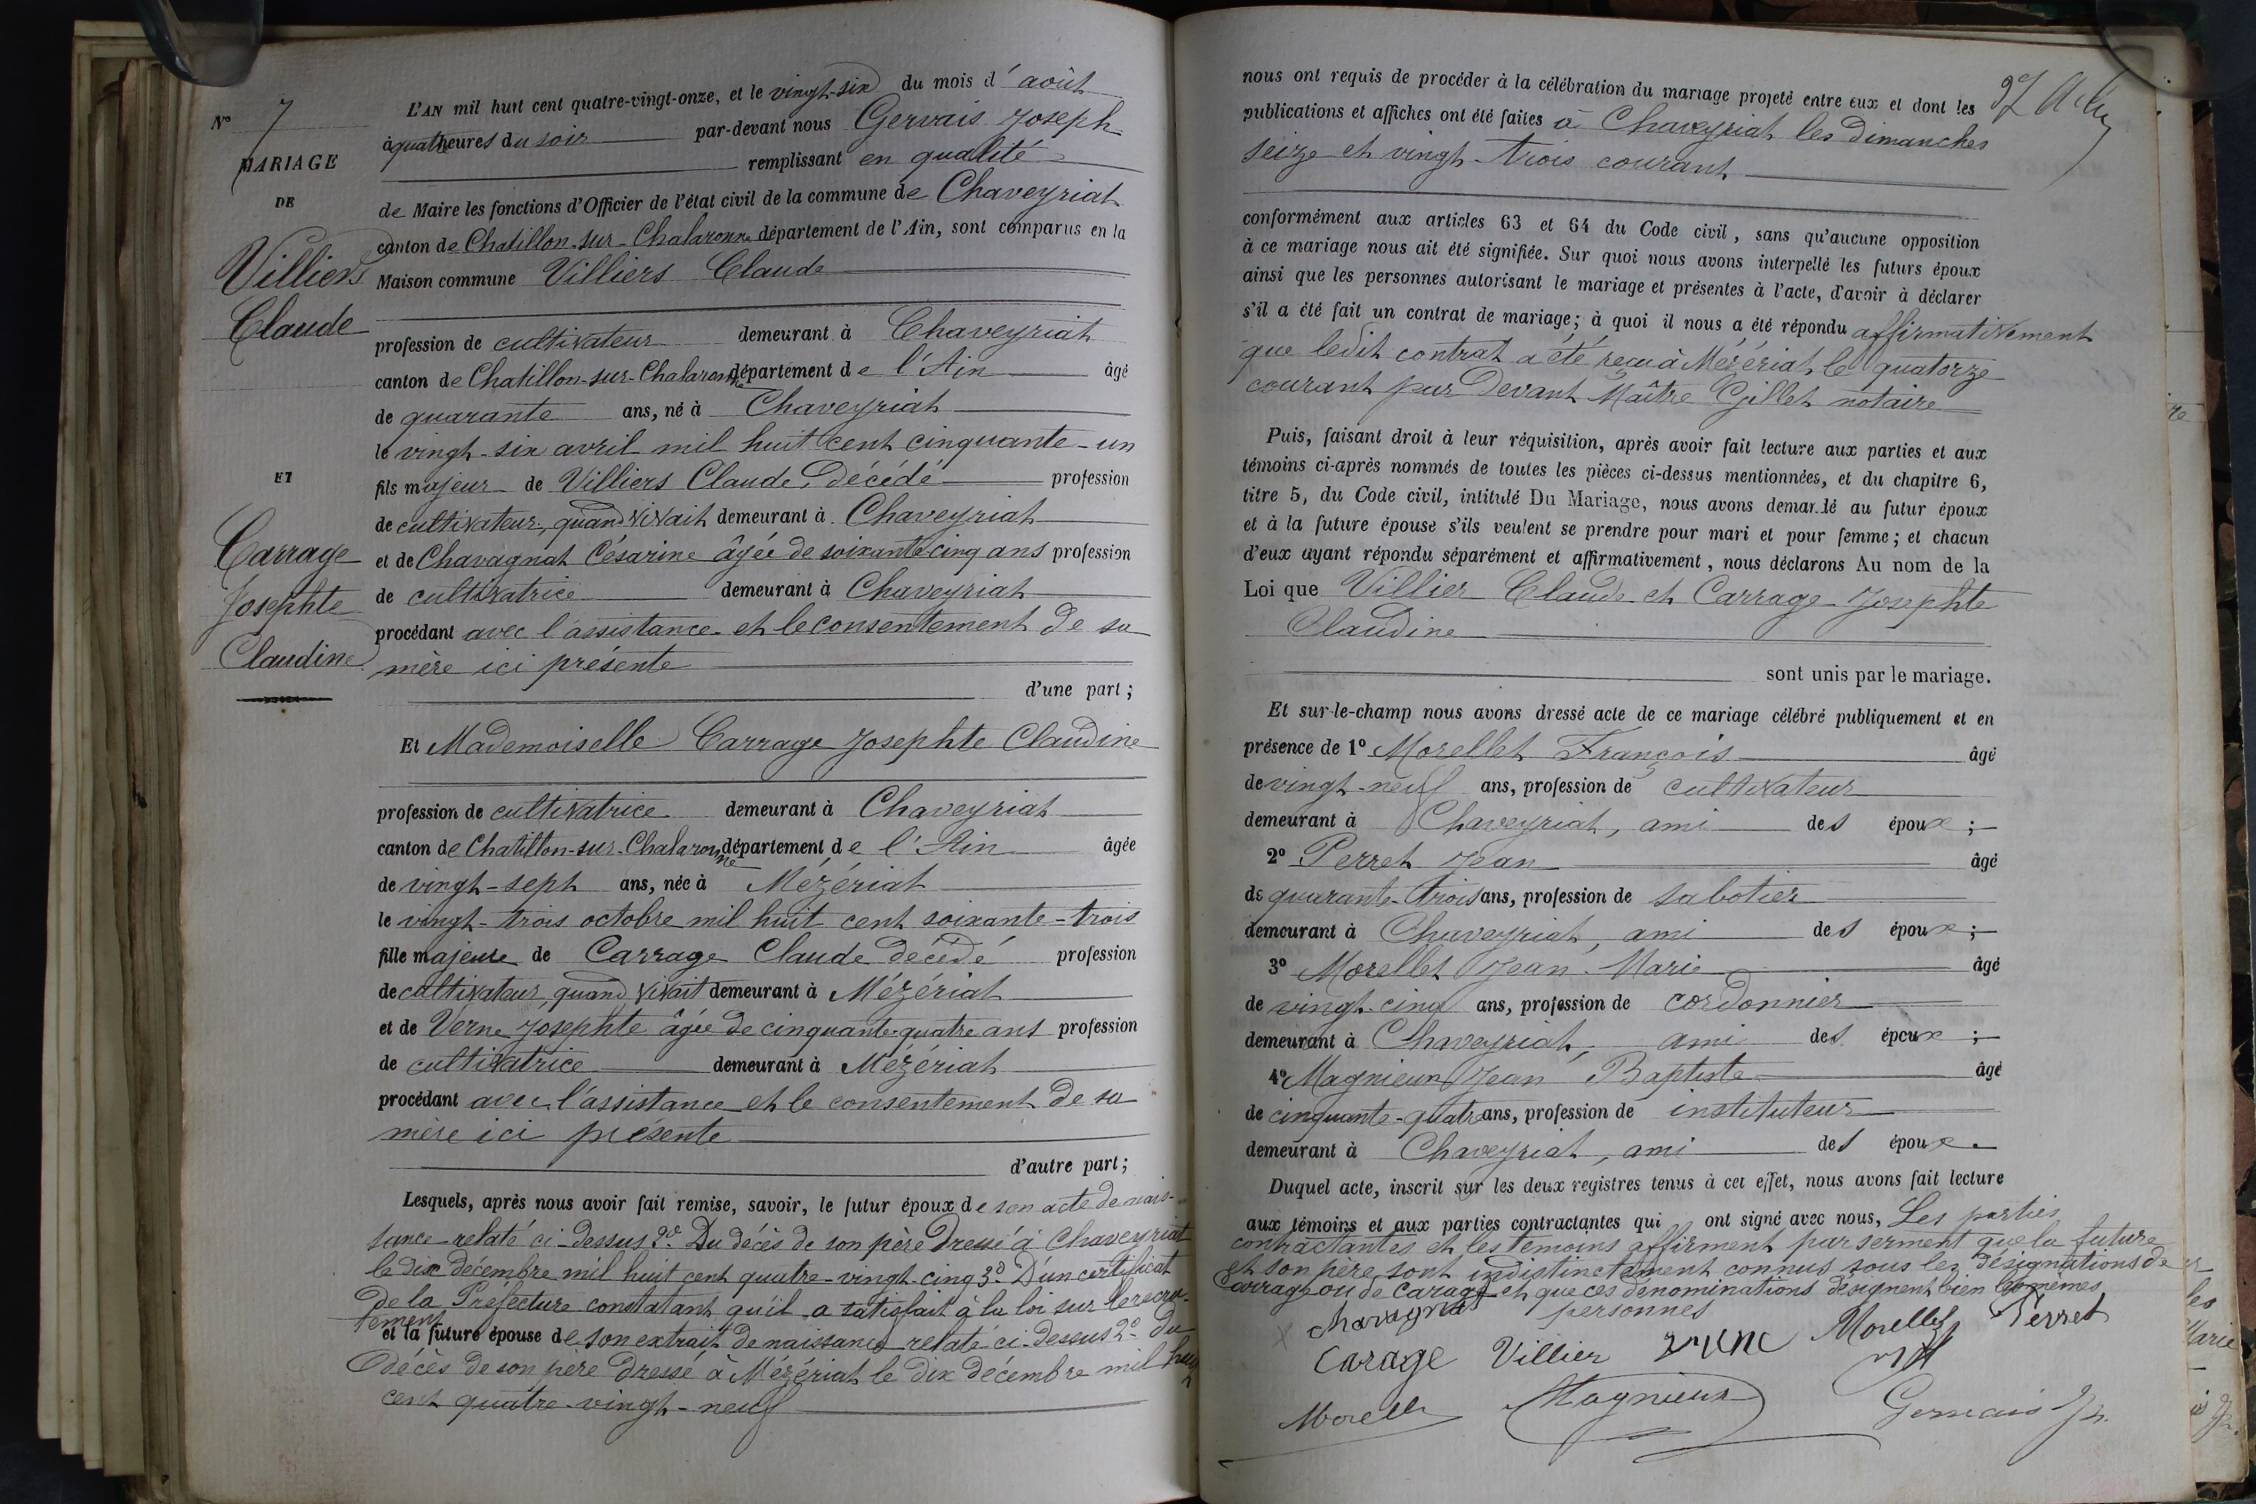 N° 7
MARIAGE
DE
Villiers
Claude
ET
Carrage
Josephte
Claudine
L'AN mil huit cent quatre-vingt-onze, et le vingt-six du mois d'août
à quatre heures du soir par-devant nous Gervais Joseph
remplissant en qualité
de Maire les fonctions d'Officier de l'état civil de la commune de Chaveyriat
canton de Chatillon-sur-Chalaronne département de l'Ain, sont comparus en la
Maison commune Villiers Claude
profession de cultivateur demeurant à Chaveyriat
canton de Chatillon-sur-Chalaronne département de l'Ain âgé
de quarante ans, né à Chaveyriat
le vingt-six avril mil huit cent cinquante-un
fils majeur de Villiers Claude, décédé profession
de cultivateur, quand vivait demeurant à Chaveyriat
et de Chavagnat Césarine âgée de soixante cinq ans profession
de cultivatrice demeurant à Chaveyriat
procédant avec l'assistance et le consentement de sa
mère ici présente
d'une part ;
Et Mademoiselle Carrage Josephte Claudine
profession de cultivatrice demeurant à Chaveyriat
canton de Chatillon-sur-Chalaronne département de l'Ain âgée
de vingt-sept ans, née à Mézériat
le vingt-trois octobre mil huit cent soixante-trois
fille majeure de Carrage Claude décédé profession
de cultivateur, quand vivait demeurant à Mézériat
et de Verne Josephte âgée de cinquante-quatre ans profession
de cultivatrice demeurant à Mézériat
procédant avec l'assistance et le consentement de sa
mère ici présente
d'autre part ;
Lesquels, après nous avoir fait remise, savoir, le futur époux de son acte de nais-
sance relaté ci-dessus 2° Du décès de son père dressé à Chaveyriat
le dix décembre mil huit cent quatre-vingt-cinq 3° D'un certificat
de la Préfecture constatant qu'il a satisfait à la loi sur le recru-
tement
et la future épouse de son extrait de naissance relaté ci-dessus 2° du
décès de son père dressé à Mézériat le dix décembre mil huit
cent quatre-vingt-neuf
nous ont requis de procéder à la célébration du mariage projeté entre eux et dont les
publications et affiches ont été faites à Chaveyriat les dimanches
seize et vingt-trois courant
conformément aux articles 63 et 64 du Code civil, sans qu'aucune opposition
à ce mariage nous ait été signifiée. Sur quoi nous avons interpellé les futurs époux
ainsi que les personnes autorisant le mariage et présentes à l'acte, d'avoir à déclarer
s'il a été fait un contrat de mariage ; à quoi il nous a été répondu affirmativement
que ledit contrat a été reçu à Mézériat le quatorze
courant par devant Maître Gillet notaire
Puis, faisant droit à leur réquisition, après avoir fait lecture aux parties et aux
témoins ci-après nommés de toutes les pièces ci-dessus mentionnées, et du chapitre 6,
titre 5, du Code civil, intitulé Du Mariage, nous avons demandé au futur époux
et à la future épouse s'ils veulent se prendre pour mari et pour femme ; et chacun
d'eux ayant répondu séparément et affirmativement, nous déclarons Au nom de la
Loi que Villier Claude et Carrage Josephte
Claudine
sont unis par le mariage.
Et sur-le-champ nous avons dressé acte de ce mariage célébré publiquement et en
présence de 1° Morellet François âgé
de vingt-neuf ans, profession de cultivateur
demeurant à Chaveyriat, ami des époux ;
2° Perret Jean âgé
de quarante-trois ans, profession de sabotier
demeurant à Chaveyriat, ami des époux ;
3° Morellet Jean-Marie âgé
de vingt-cinq ans, profession de cordonnier
demeurant à Chaveyriat, ami des époux ;
4° Magnieux Jean Baptiste âgé
de cinquante-quatre ans, profession de instituteur
demeurant à Chaveyriat, ami des époux.
Duquel acte, inscrit sur les deux registres tenus à cet effet, nous avons fait lecture
aux témoins et aux parties contractantes qui ont signé avec nous, Les parties
contractantes et les témoins affirment par serment que la future
et son père sont indistinctement connus sous les désignations de
Carrage ou de Carage et que ces dénominations désignent bien les mêmes
personnes
Chavagnat
Morellet Perret
Carage Villier
Morelle Magnieux Gervais Jh.